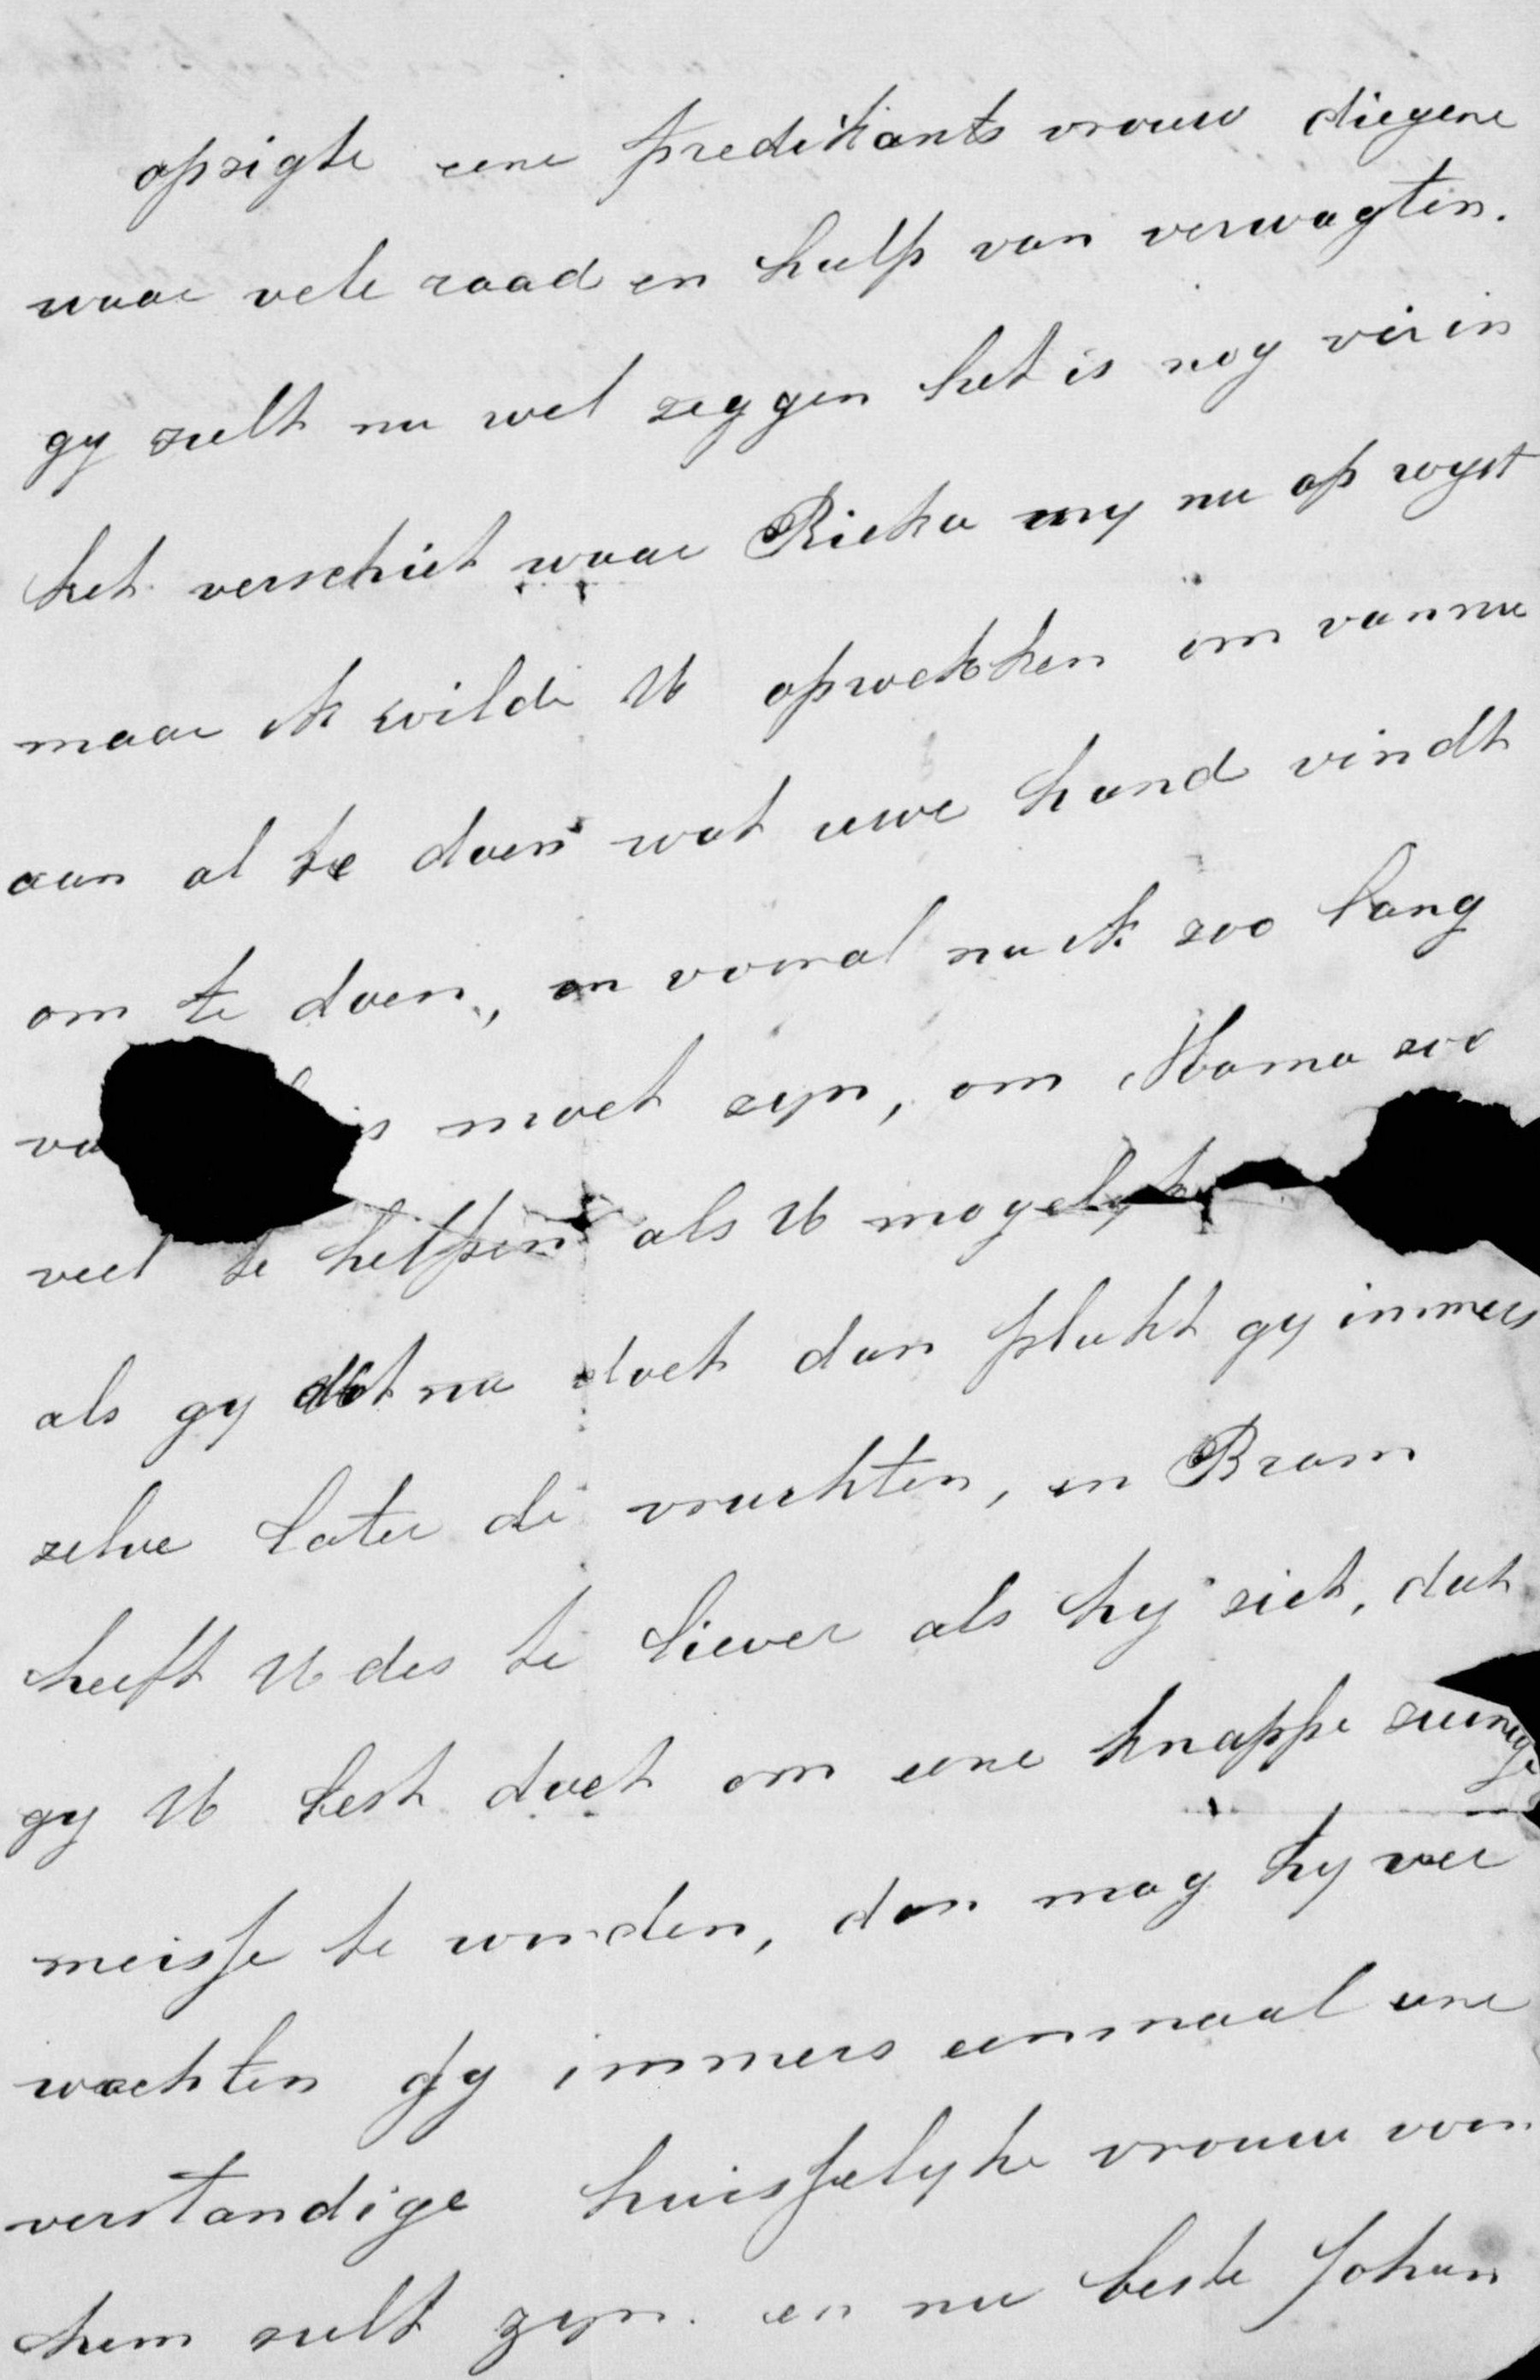 opzigte eene predikants vrouw diegene
waar vele raad en hulp van verwagten.
gy zult nu wel zeggen het is nog ver in
het verschiet waar Rieka my nu op wyst
maar ik wilde U opwekken om van nu
aan al te doen wat uwe hand vindt
om te doen, en vooral nu ik zoo lang
va is moet zyn, om Mama zoo
veel te helpen als U mogelyk
als gy dit nu doet dan plukt gy immers
zelve later de vruchten, en Bram
heeft U des te liever als hy ziet, dat
gy U best doet om eene knappe zuinige
meisje te worden, dan mag hy ver
wachten gy immers eenmaal eene
verstandige huisselyke vrouw voor
hem zult zyn. en nu beste Johan